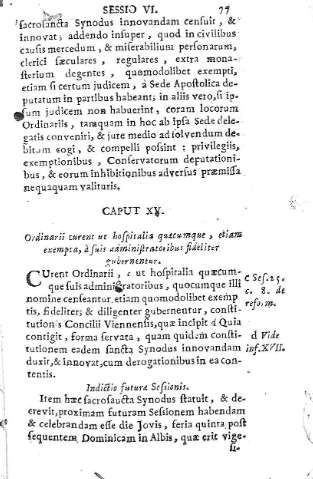 SESSIO VI. 77
sacrosancta Synodus innovandam censuit, &
innovat; addendo insuper, quod in civilibus
causis mercedum, & miserabilium personarum,
clerici sæculares, regulares, extra mona-
sterium degentes, quomodolibet exempti,
etiam si certum judicem, à Sede Apostolica de-
putatum in partibus habeant; in aliis vero, si ip-
sum judicem non habuerint, coram locorum
Ordinariis, tanquam in hoc ab ipsa Sede dele-
gatis conveniri, & jure medio ad solvendum de-
bitum cogi, & compelli possint; privilegiis,
exemptionibus, Conservatorum deputationi-
bus, & eorum inhibitionibus adversus præmissa
nequaquam valituris.
CAPUT XV.
Ordinarii curent ut hospitalia quæcumque, etiam
exempta, à suis administratoribus fideliter
gubernentur.
CUrent Ordinarii, ut hospitalia quæcum-
que suis administratoribus, quocumque illi
nomine censeantur, etiam quomodolibet exemp-
tis, fideliter, & diligenter gubernentur, consti-
tutionis Concilii Viennensis, quæ incipit d Quia
contigit, forma servata, quam quidem consti-
tutionem eadem sancta Synodus innovandam
duxit, & innovat, cum derogationibus in ea con-
tentis.
c Ses. 25.
c. 8. de
reform.
d Vide
inf. XVII.
Indictio futura Sessionis.
Item hæc sacrosancta Synodus statuit, & de-
crevit, proximam futuram Sessionem habendam
& celebrandam esse die Jovis, feria quinta post
sequentem Dominicam in Albis, quæ erit vige-